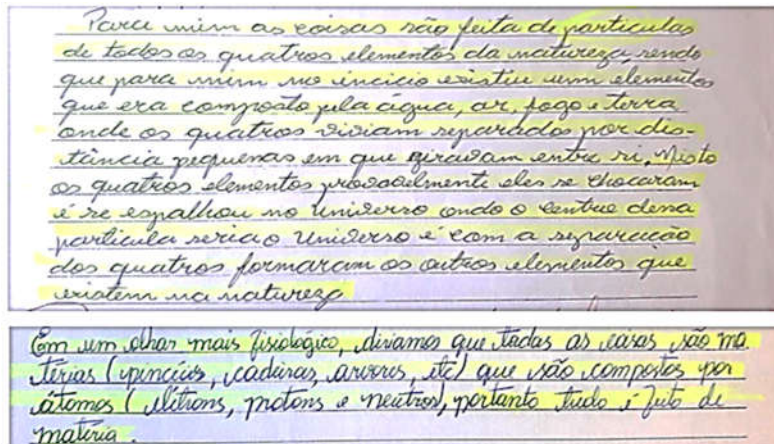 Para mim as coisas são feita de particulas
de todos os quatros elementos da natureza, sendo
que para mim no incicio existiu um elementos
que era composto pela água, ar, fogo e terra
onde os quatros viviam separados por dis-
tância pequenas em que giravam entre si. Nisto
os quatros elementos provavelmente eles se chocaram
é se espalhou no universo onde o centro dessa
particula seria o universo é com a separação
dos quatros formaram os outros elementos que
existem na natureza
Em um olhar mais fisiológico, diriamos que todas as coisas são ma
térias (pincéis, cadeiras, arvores, etc) que são compostas por
átomos (elétrons, protons e neutros), portanto tudo é feito de
matéria.